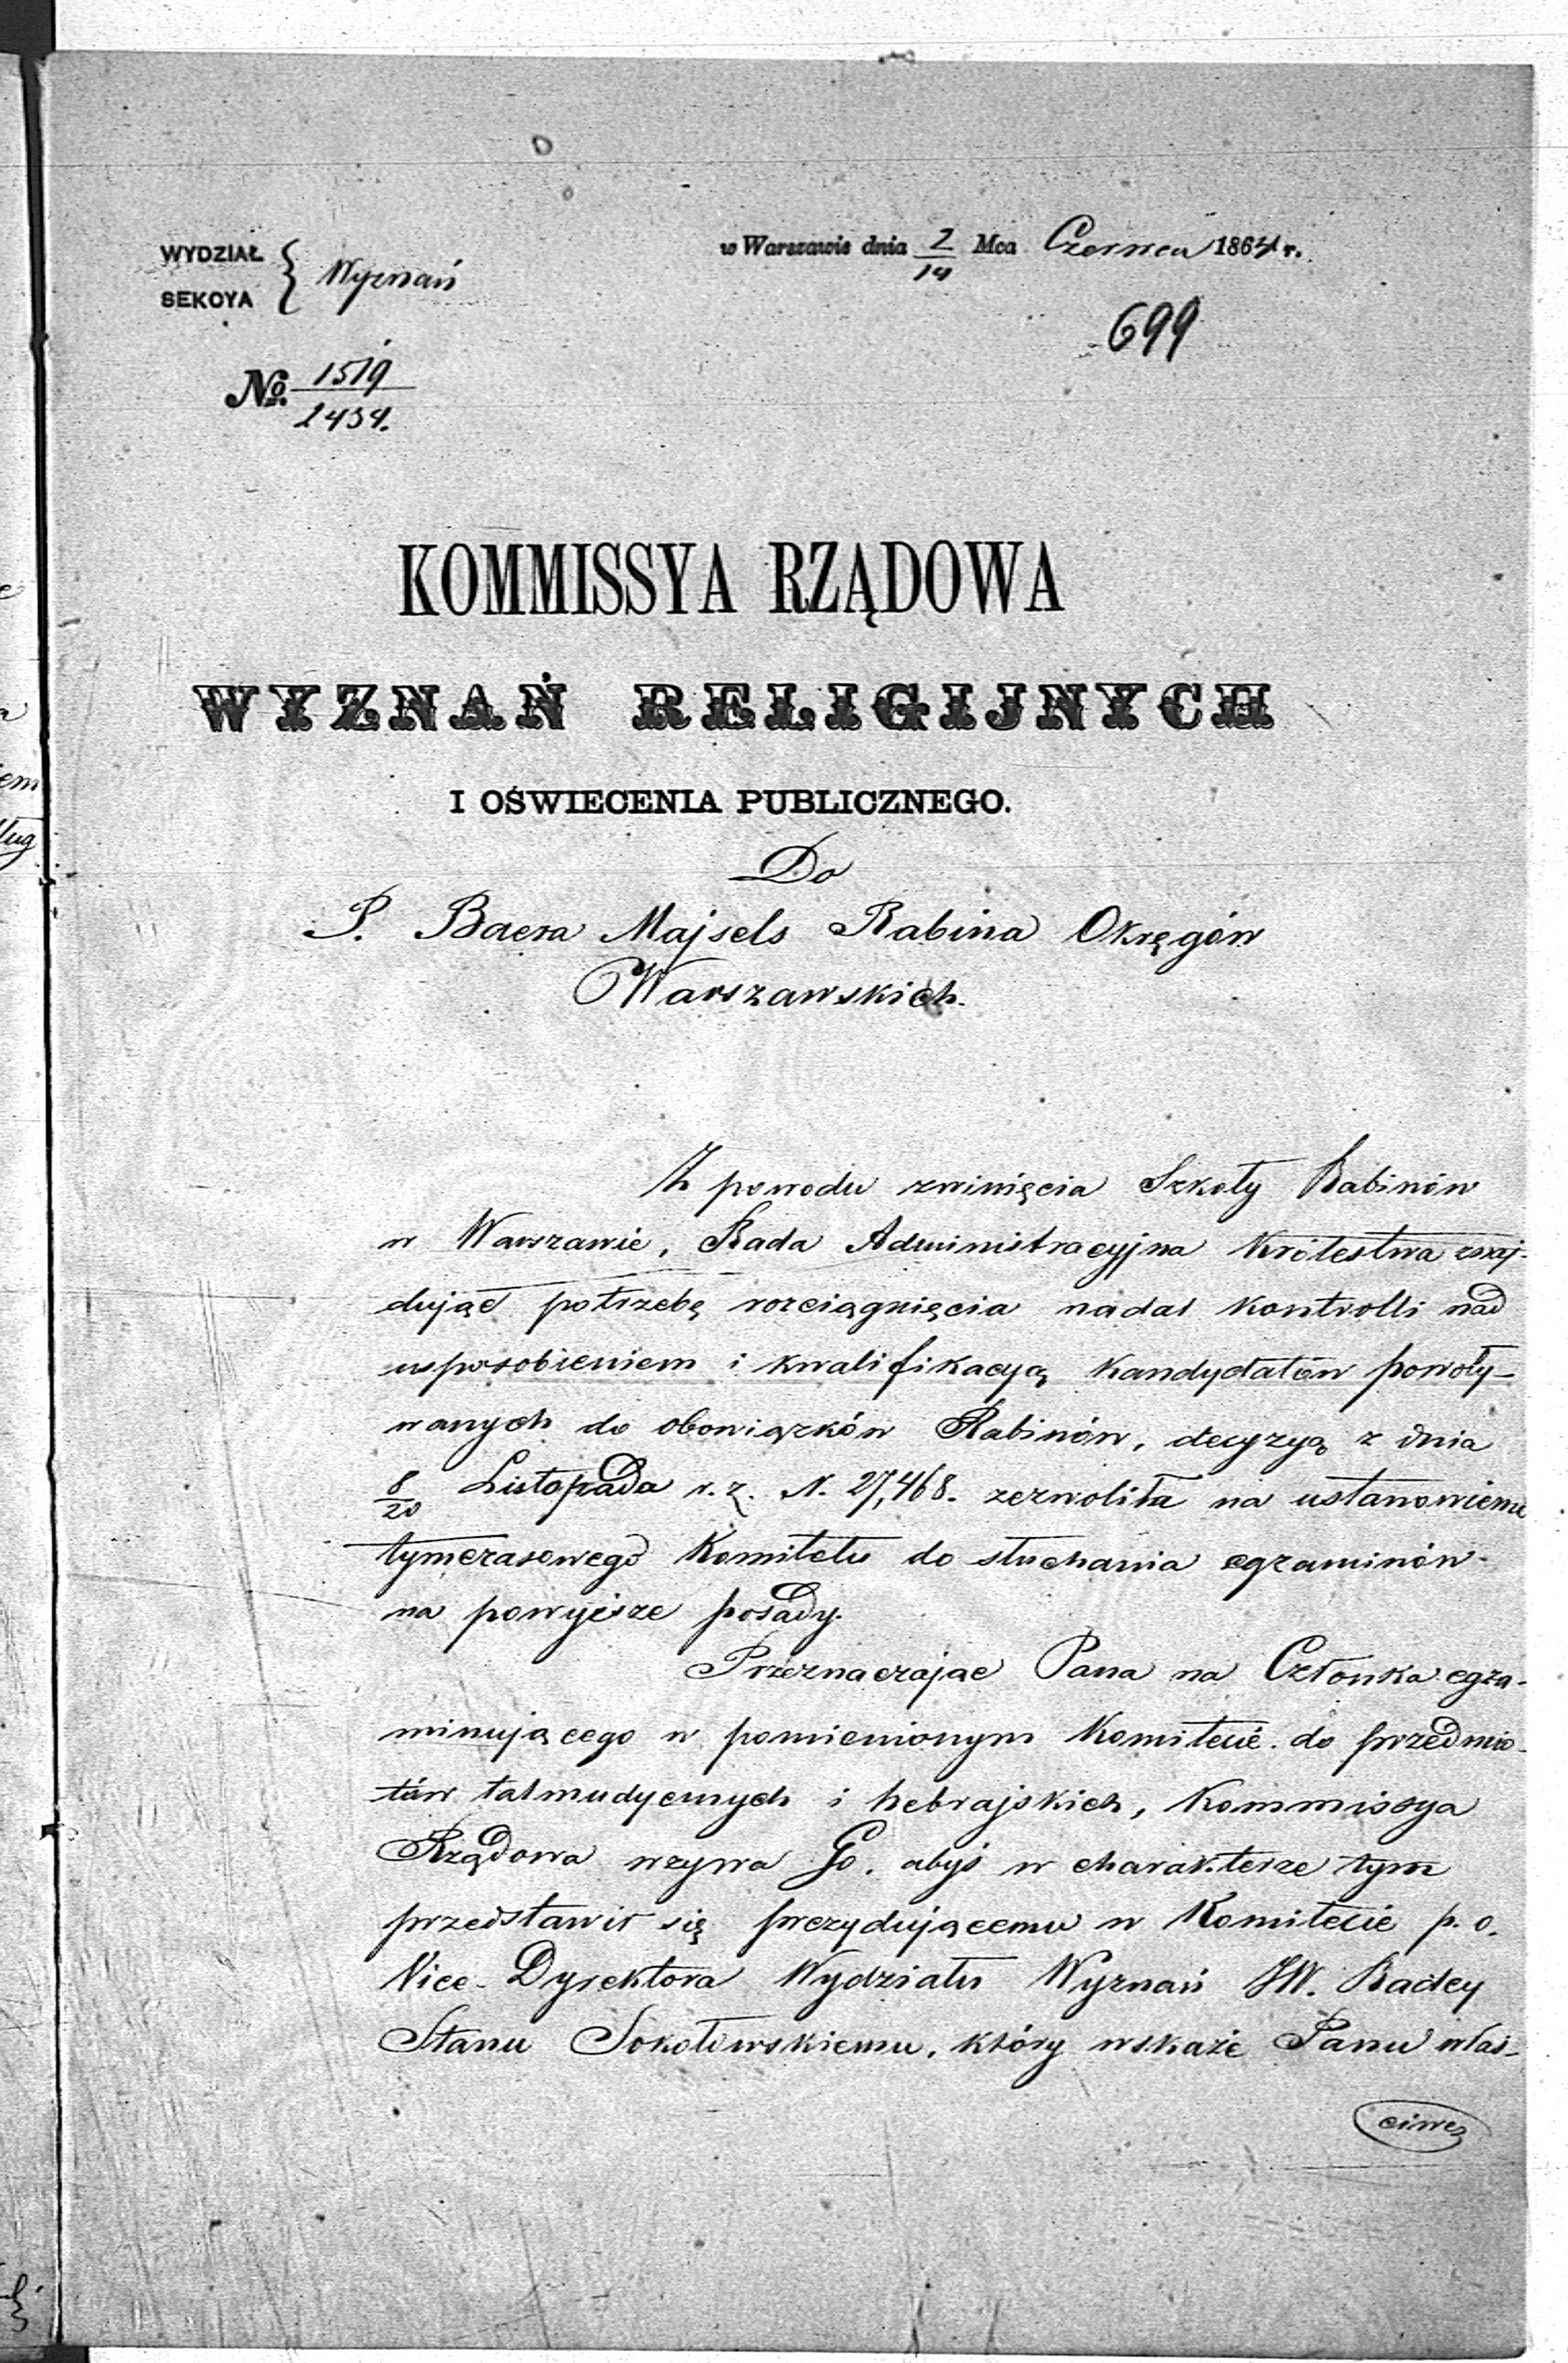 WYDZIAŁ
SEKCYA } Wyznań
w Warszawie dnia 2/14 Mca Czerwca 1864 r.
699
No. 1519/2434.
KOMMISSYA RZĄDOWA
WYZNAŃ RELIGIJNYCH
I OŚWIECENIA PUBLICZNEGO.
Do
P. Baera Majsels Rabina Okręgów
Warszawskich.
Z powodu zwinięcia Szkoły Rabinów
w Warszawie, Rada Administracyjna Królestwa znaj-
dując potrzebę rozciągnięcia nadal kontrolli nad
usposobieniem i kwalifikacyą kandydatów powoły-
wanych do obowiązków Rabinów, decyzyą z dnia
8/20 Listopada r. z. N. 27,468. zezwoliła na ustanowienie
tymczasowego Komitetu do słuchania egzaminów
na powyższe posady.
Przeznaczając Pana na Członka egza-
minującego w pomienionym Komitecie do przedmio-
tów talmudycznych i hebrajskich, Kommissya
Rządowa wzywa Go, abyś w charakterze tym
przedstawił się prezydującemu w Komitecie p. o.
Vice-Dyrektora Wydziału Wyznań JW. Radcy
Stanu Sokołowskiemu, który wskaże Panu właś-
ciwe